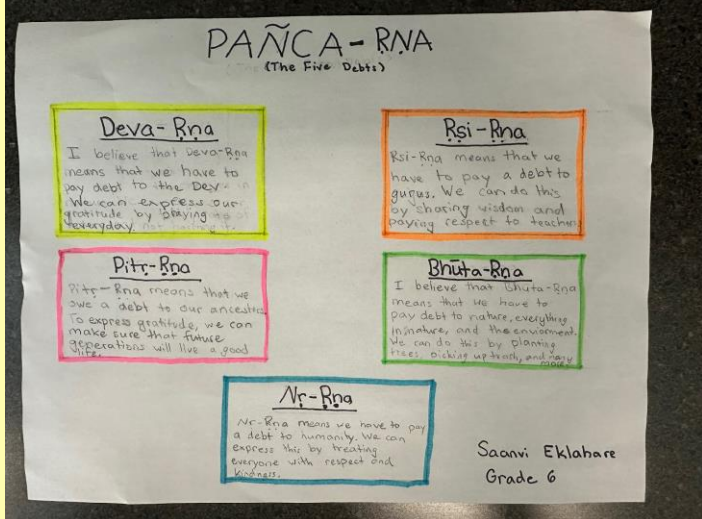 PAÑCA-ṚNA
(The Five Debts)
Deva-Ṛṇa
I believe that Deva-Ṛṇa
means that we have to
pay debt to the Dev
We can express our
gratitude by praying to
everyday
Ṛṣi-Ṛṇa
Ṛsi-Ṛṇa means that we
have to pay a debt to
gurus. We can do this
by sharing wisdom and
paying respect to teachers
Pitṛ-Ṛṇa
Pitṛ-Ṛṇa means that we
owe a debt to our ancestors.
To express gratitude, we can
make sure that future
generations will live a good
life.
Bhūta-Ṛṇa
I believe that Bhuta-Ṛṇa
means that we have to
pay debt to nature, everything
in nature, and the enviorment.
We can do this by planting
trees, picking up trash, and many
more
Nṛ-Ṛṇa
Nṛ-Ṛṇa means we have to pay
a debt to humanity. We can
express this by treating
everyone with respect and
kindness.
Saanvi Eklahare
Grade 6